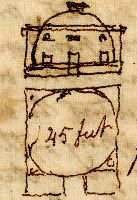 45 feet